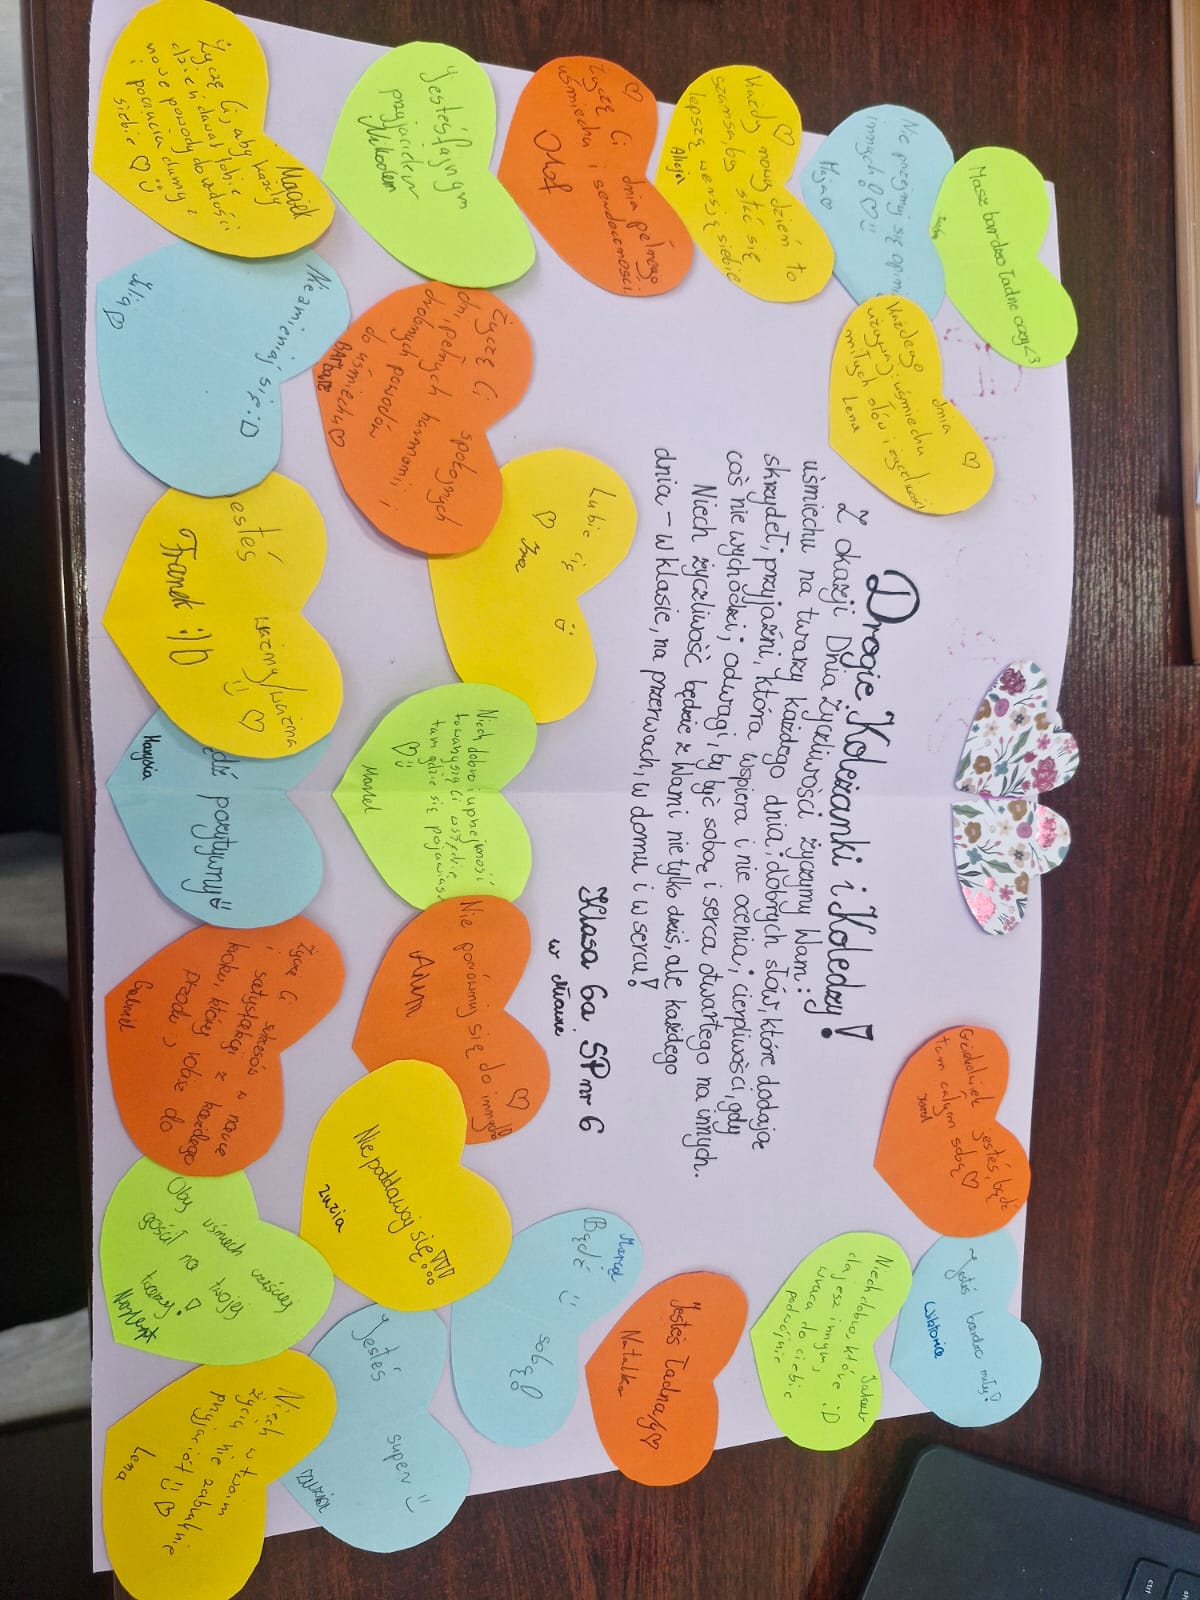 Drogie Koleżanki i Koledzy!
Z okazji Dnia Życzliwości życzymy Wam:
uśmiechu na twarzy każdego dnia; dobrych słów, które dodają
skrzydeł; przyjaźni, która wspiera i nie ocenia; cierpliwości, gdy
coś nie wychodzi; odwagi, by być sobą i serca otwartego na innych.
Niech życzliwość będzie z Wami nie tylko dziś, ale każdego
dnia - w klasie, na przerwach, w domu i w sercu!
Klasa 6a SP nr 6
w Mławie
Masz bardzo ładne oczy <3
Nie przejmuj się opini
innych! ♡ :)
Maja ♡
♡
Każdy nowy dzień to
szansa, by stać się
lepszą wersją siebie
Alicja
♡
Życzę Ci dnia pełnego
uśmiechu i serdeczności.
Olaf
Jesteś fajnym
przyjacielem
Nikodem
Maciek
Życzę Ci, aby każdy
dzień dawał Tobie
nowe powody do radości
i poczucia dumy z
siebie ♡ :)
Każdego dnia ♡
używaj uśmiechu
miłych słów i życzliwości
Lena
Nie zmieniaj się :D
Julia ♡
Życzę Ci spokojnych
dni, pełnych harmonii i
drobnych powodów
do uśmiechu ♡
Bartosz
Lubię cię :)
♡
esteś ważny/ważna
:) ♡
Franek :)D
Niech dobro i uprzejmość
tam gdzie się pojawiasz
♡ :)
Marcel
edź pozytywny :)
Marysia
Nie porównuj się do innych!! ♡
Antm
Życzę Ci sukcesów w nauce
i satysfakcji z każdego
kroku, który robisz do
przodu ;)
Gabriel
Nie poddawaj się!!!
Zuzia
Oby uśmiech cześciej
gościł na twojej
twarzy!
Norbert
Marcel
Bądź :) sobą!
Jesteś super :)
Zuzia
Niech w twoim
życiu nie zabraknie
przyjaciół :) ♡
Lena
Jesteś ładna/y ♡
Natalka
Jakub
Niech dobro, które :D
dajesz innym,
wraca do ciebie
podwójnie
Jesteś bardzo miły!
Wiktoria
Gdziekolwiek jesteś, bądź
tam całym sobą ♡
Karol
ctrl